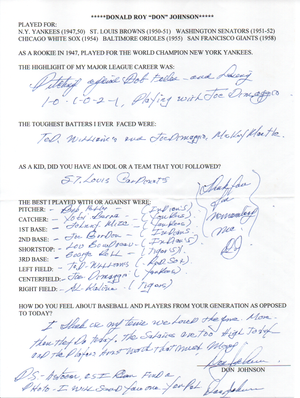 *****DONALD ROY "DON" JOHNSON*****
PLAYED FOR:
N.Y. YANKEES (1947,50) ST. LOUIS BROWNS (1950-51) WASHINGTON SENATORS (1951-52)
CHICAGO WHITE SOX (1954) BALTIMORE ORIOLES (1955) SAN FRANCISCO GIANTS (1958)
AS A ROOKIE IN 1947, PLAYED FOR THE WORLD CHAMPION NEW YORK YANKEES.
THE HIGHLIGHT OF MY MAJOR LEAGUE CAREER WAS:
Pitching against Bob Feller - and Losing
1-0, 1-0-2-1, Playing with Joe Dimaggio
THE TOUGHEST BATTERS I EVER FACED WERE:
Ted Williams and Joe Dimaggio, Mickey Mantle
AS A KID, DID YOU HAVE AN IDOL OR A TEAM THAT YOU FOLLOWED?
ST. Louis Cardinals
THE BEST I PLAYED WITH OR AGAINST WERE:
PITCHER: - Bob Feller - (Indians)
CATCHER: - Yogi Berra - (Yankees)
1ST BASE: - Johnny Mize - (Yankees)
2ND BASE: - Joe Gordon - (Indians)
SHORTSTOP: - Lou Boudreau - (Indians)
3RD BASE: - George Kell - (Tigers)
LEFT FIELD: - Ted Williams - (Red Sox)
CENTERFIELD: - Joe Dimaggio - (Yankees)
RIGHT FIELD: - Al Kaline - (Tigers)
Thank you
for
remembering
me
DJ
HOW DO YOU FEEL ABOUT BASEBALL AND PLAYERS FROM YOUR GENERATION AS OPPOSED
TO TODAY?
I think in my time we Loved the game More
then they do Today, the Salaries are Too high Today
and the Players arent worth that much Money
Don Johnson
DON JOHNSON
P.S. I
Photo - I will send you one
Don Johnson